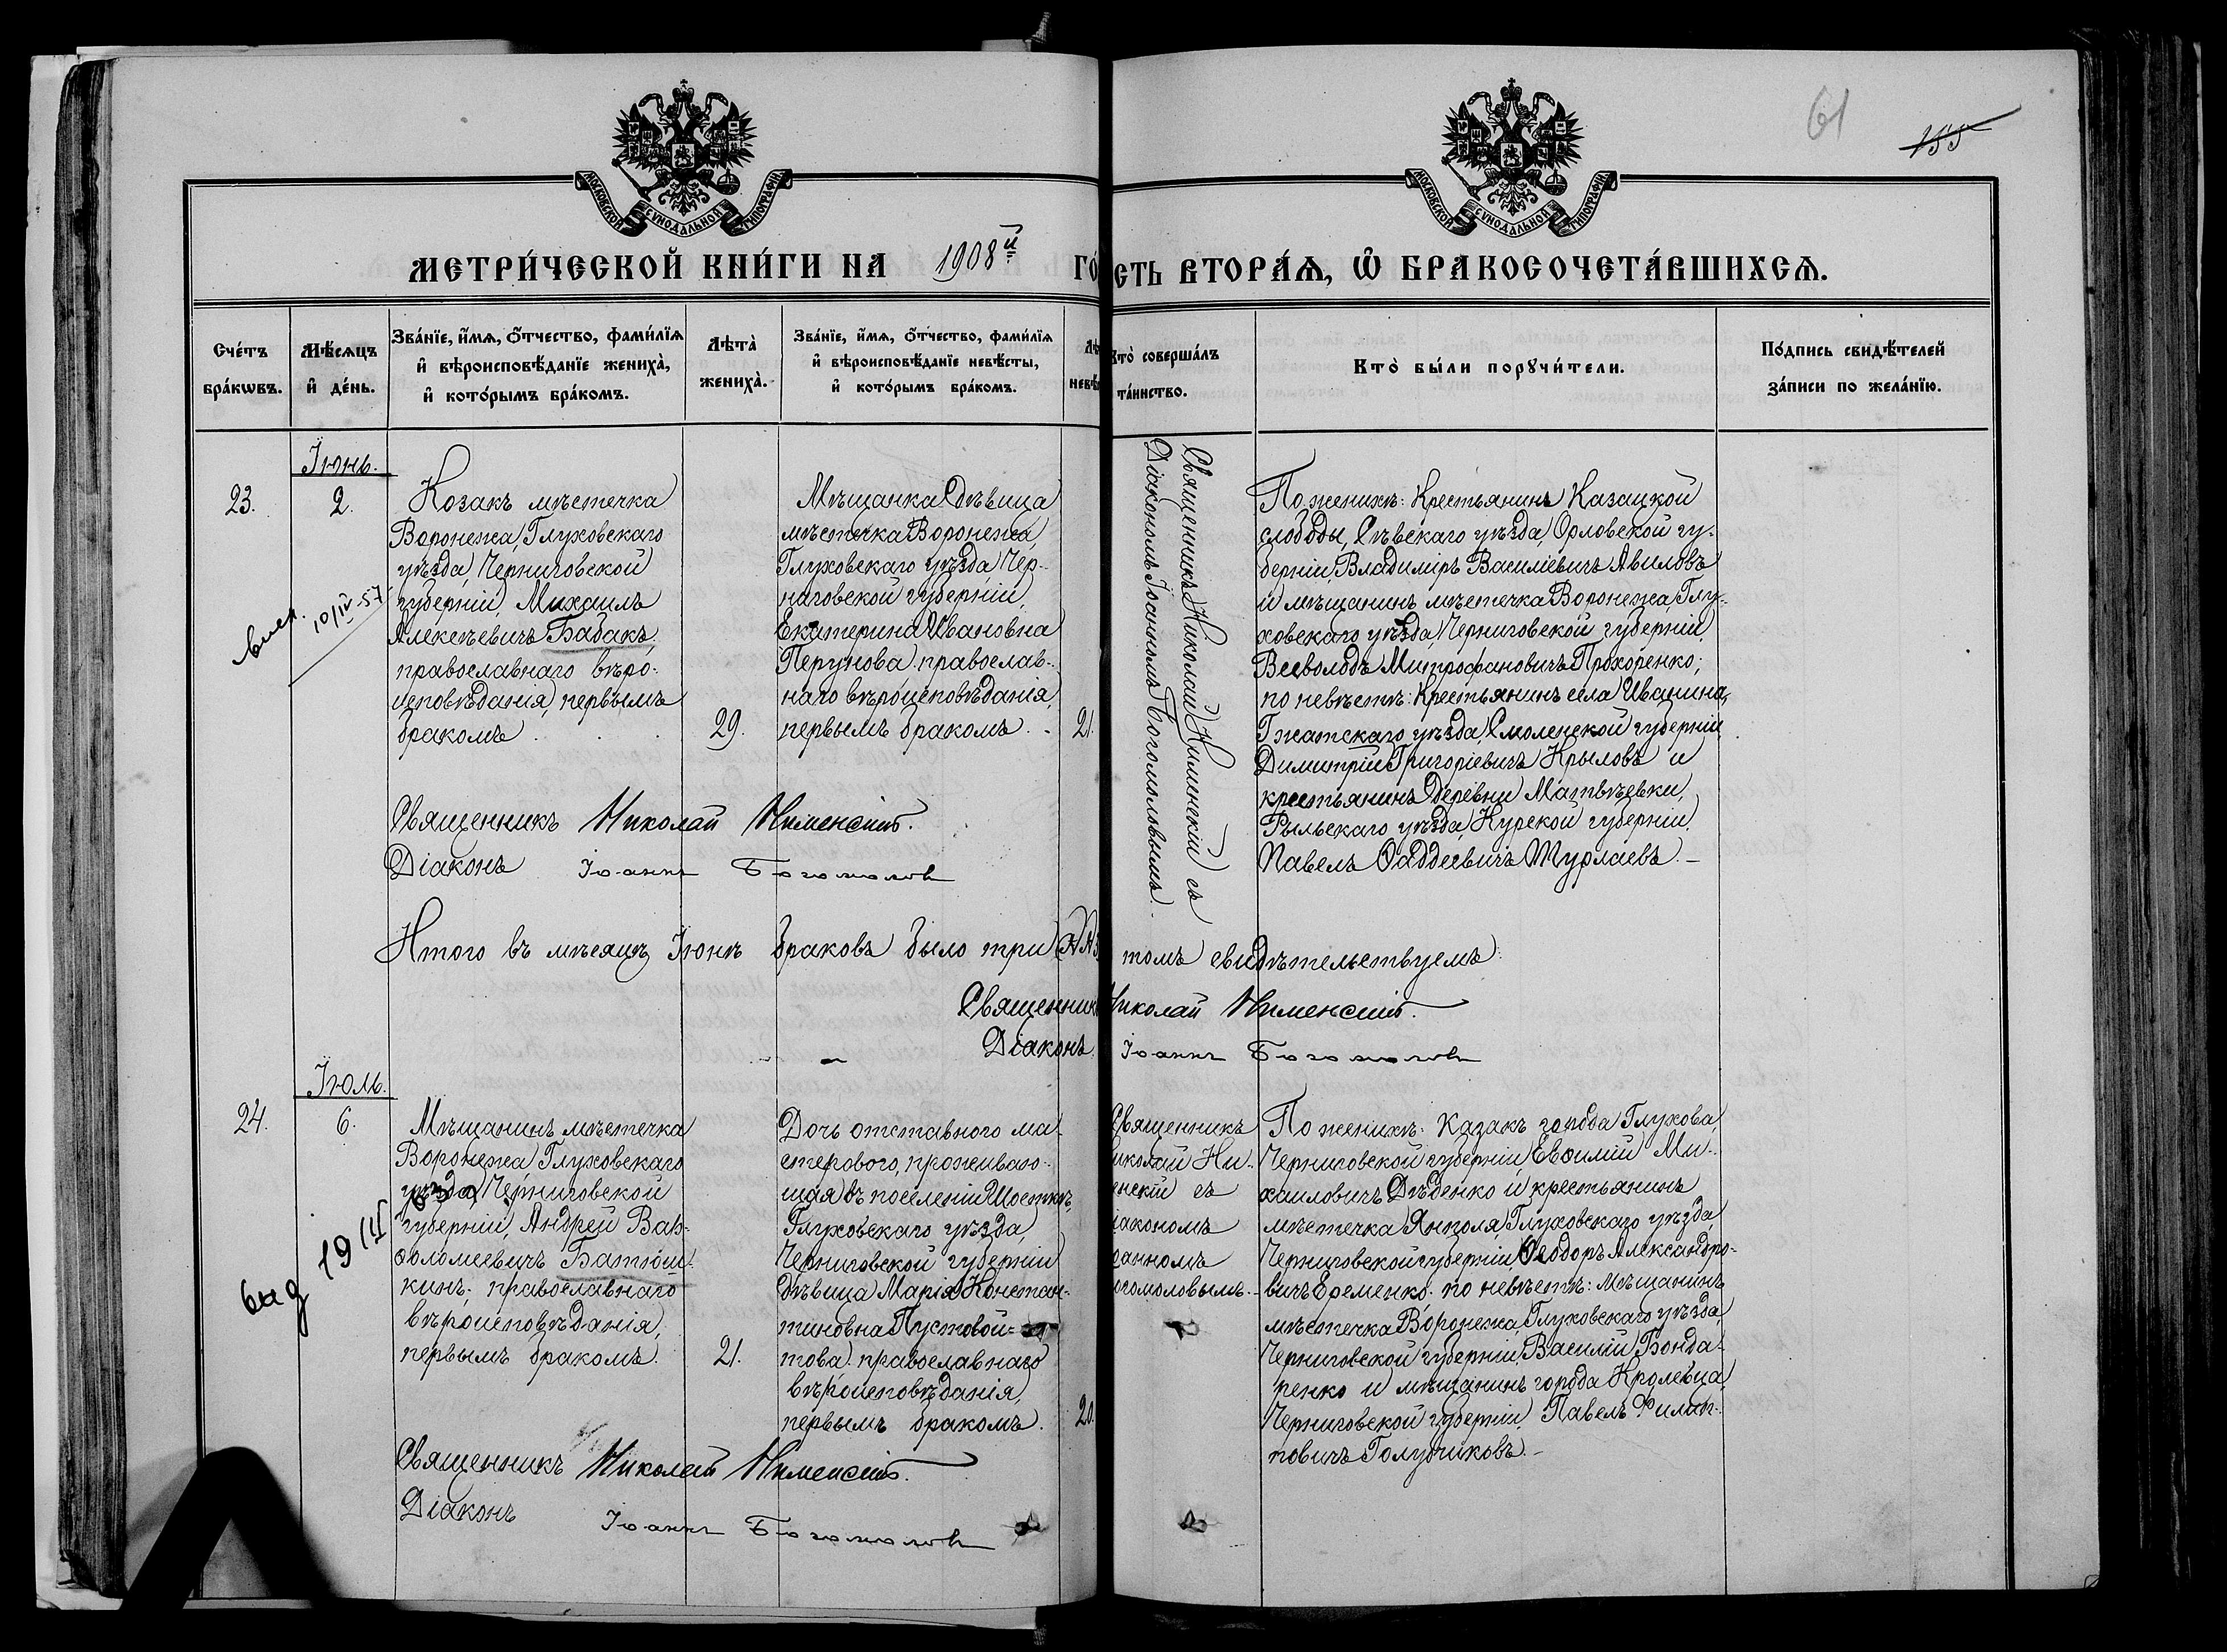 61
155
МОСКОВСКОЙ СУНОДАЛЬНОЙ ТИПОГРАФИИ
МОСКОВСКОЙ СУНОДАЛЬНОЙ ТИПОГРАФИИ
МЕТРИ́ЧЕСКОЙ КНИ́ГИ НА 1908й ГО
СТЬ ВТОРА́Ѧ, Ѽ БРАКОСОЧЕТА́ВШИХСѦ.
Сче́тъ бра́кωвъ.
Мѣ́сѧцъ и҆ де́нь.
Зва́нїе, и҆́мѧ, ѻ҆́тчество, фами́лїѧ
и҆ вѣроисповѣ́данїе жениха̀,
и҆ кото́рымъ бра́комъ.
Лѣта̀ жениха̀.
Зва́нїе, и҆́мѧ, ѻ҆́тчество, фами́лїѧ
и҆ вѣроисповѣ́данїе невѣ́сты,
и҆ кото́рымъ бра́комъ.
Лѣ
невѣ
Кто̀ соверша́лъ
та́инство.
Кто̀ бы́ли порꙋчи́тели.
По́дпись свидѣ́телей
за́писи по жела́нїю.
Іюнь.
23.
2.
Козакъ мѣстечка
Воронежа, Глуховскаго
уѣзда, Черниговской
губерніи, Михаилъ
Алексѣевичъ Бабакъ,
православнаго вѣро-
исповѣданія, первымъ
бракомъ
29.
10/IV-57
Мѣщанка дѣвица
мѣстечка Воронежа,
Глуховскаго уѣзда, Чер-
ниговской губерніи,
Екатерина Ивановна
Перунова, православ-
наго вѣроисповѣданія,
первымъ бракомъ.
21.
Священникъ Николай Нименскій съ
Діакономъ Іоанномъ Богомоловымъ.
По женихѣ: Крестьянинъ Казацкой
слободы, Сѣвскаго уѣзда, Орловской гу-
берніи, Владиміръ Василіевичъ Авиловъ
и мѣщанинъ мѣстечка Воронежа, Глу-
ховскаго уѣзда, Черниговской губерніи,
Всеволодъ Митрофановичъ Прохоренко;
по невѣстѣ: Крестьянинъ села Иванина,
Гжатскаго уѣзда, Смоленской губерніи,
Димитрій Григоріевичъ Крыловъ и
крестьянинъ деревни Матвѣевки,
Рыльскаго уѣзда, Курской губерніи,
Павелъ Фаддеевичъ Журлаевъ.—
Священникъ Николай Нименскій.
Діаконъ Іоаннъ Богомолов
Итого въ мѣсяцѣ Іюнѣ браковъ было три
томъ свидѣтельствуемъ:
Священник Николай Нименскій.
Діаконъ Іоаннъ Богомолов
Іюль.
24.
6.
Мѣщанинъ мѣстечка
Воронежа, Глуховскаго
уѣзда, Черниговской
губерніи, Андрей Вар-
ѳоломеевичъ Батюш-
кинъ, православнаго
вѣроисповѣданія,
первымъ бракомъ.
21.
Дочь отставного ма-
стерового, проживаю-
щая въ поселеніи Шосткѣ,
Глуховскаго уѣзда,
Черниговской губерніи
дѣвица Марія Констан-
тиновна Пустовой-
това, православнаго
вѣроисповѣданія,
первымъ бракомъ.
20.
Священникъ
иколай Ни-
енскій съ
іакономъ
оанномъ
огомоловымъ.
По женихѣ: Казакъ города Глухова,
Черниговской губерніи, Евѳимій Ми-
хаиловичъ Дѣденко и крестьянинъ
мѣстечка Янполя, Глуховскаго уѣзда,
Черниговской губерніи, Ѳеодоръ Александро-
вичъ Еременко. по невѣстѣ: мѣщанинъ
мѣстечка Воронежа, Глуховскаго уѣзда,
Черниговской губерніи, Василій Бонда-
ренко и мѣщанинъ города Кролевца,
Черниговской губерніи, Павелъ Филип-
повичъ Голубчиковъ.—
Священникъ Николай Нименскій.
Діаконъ Іоаннъ Богомолов